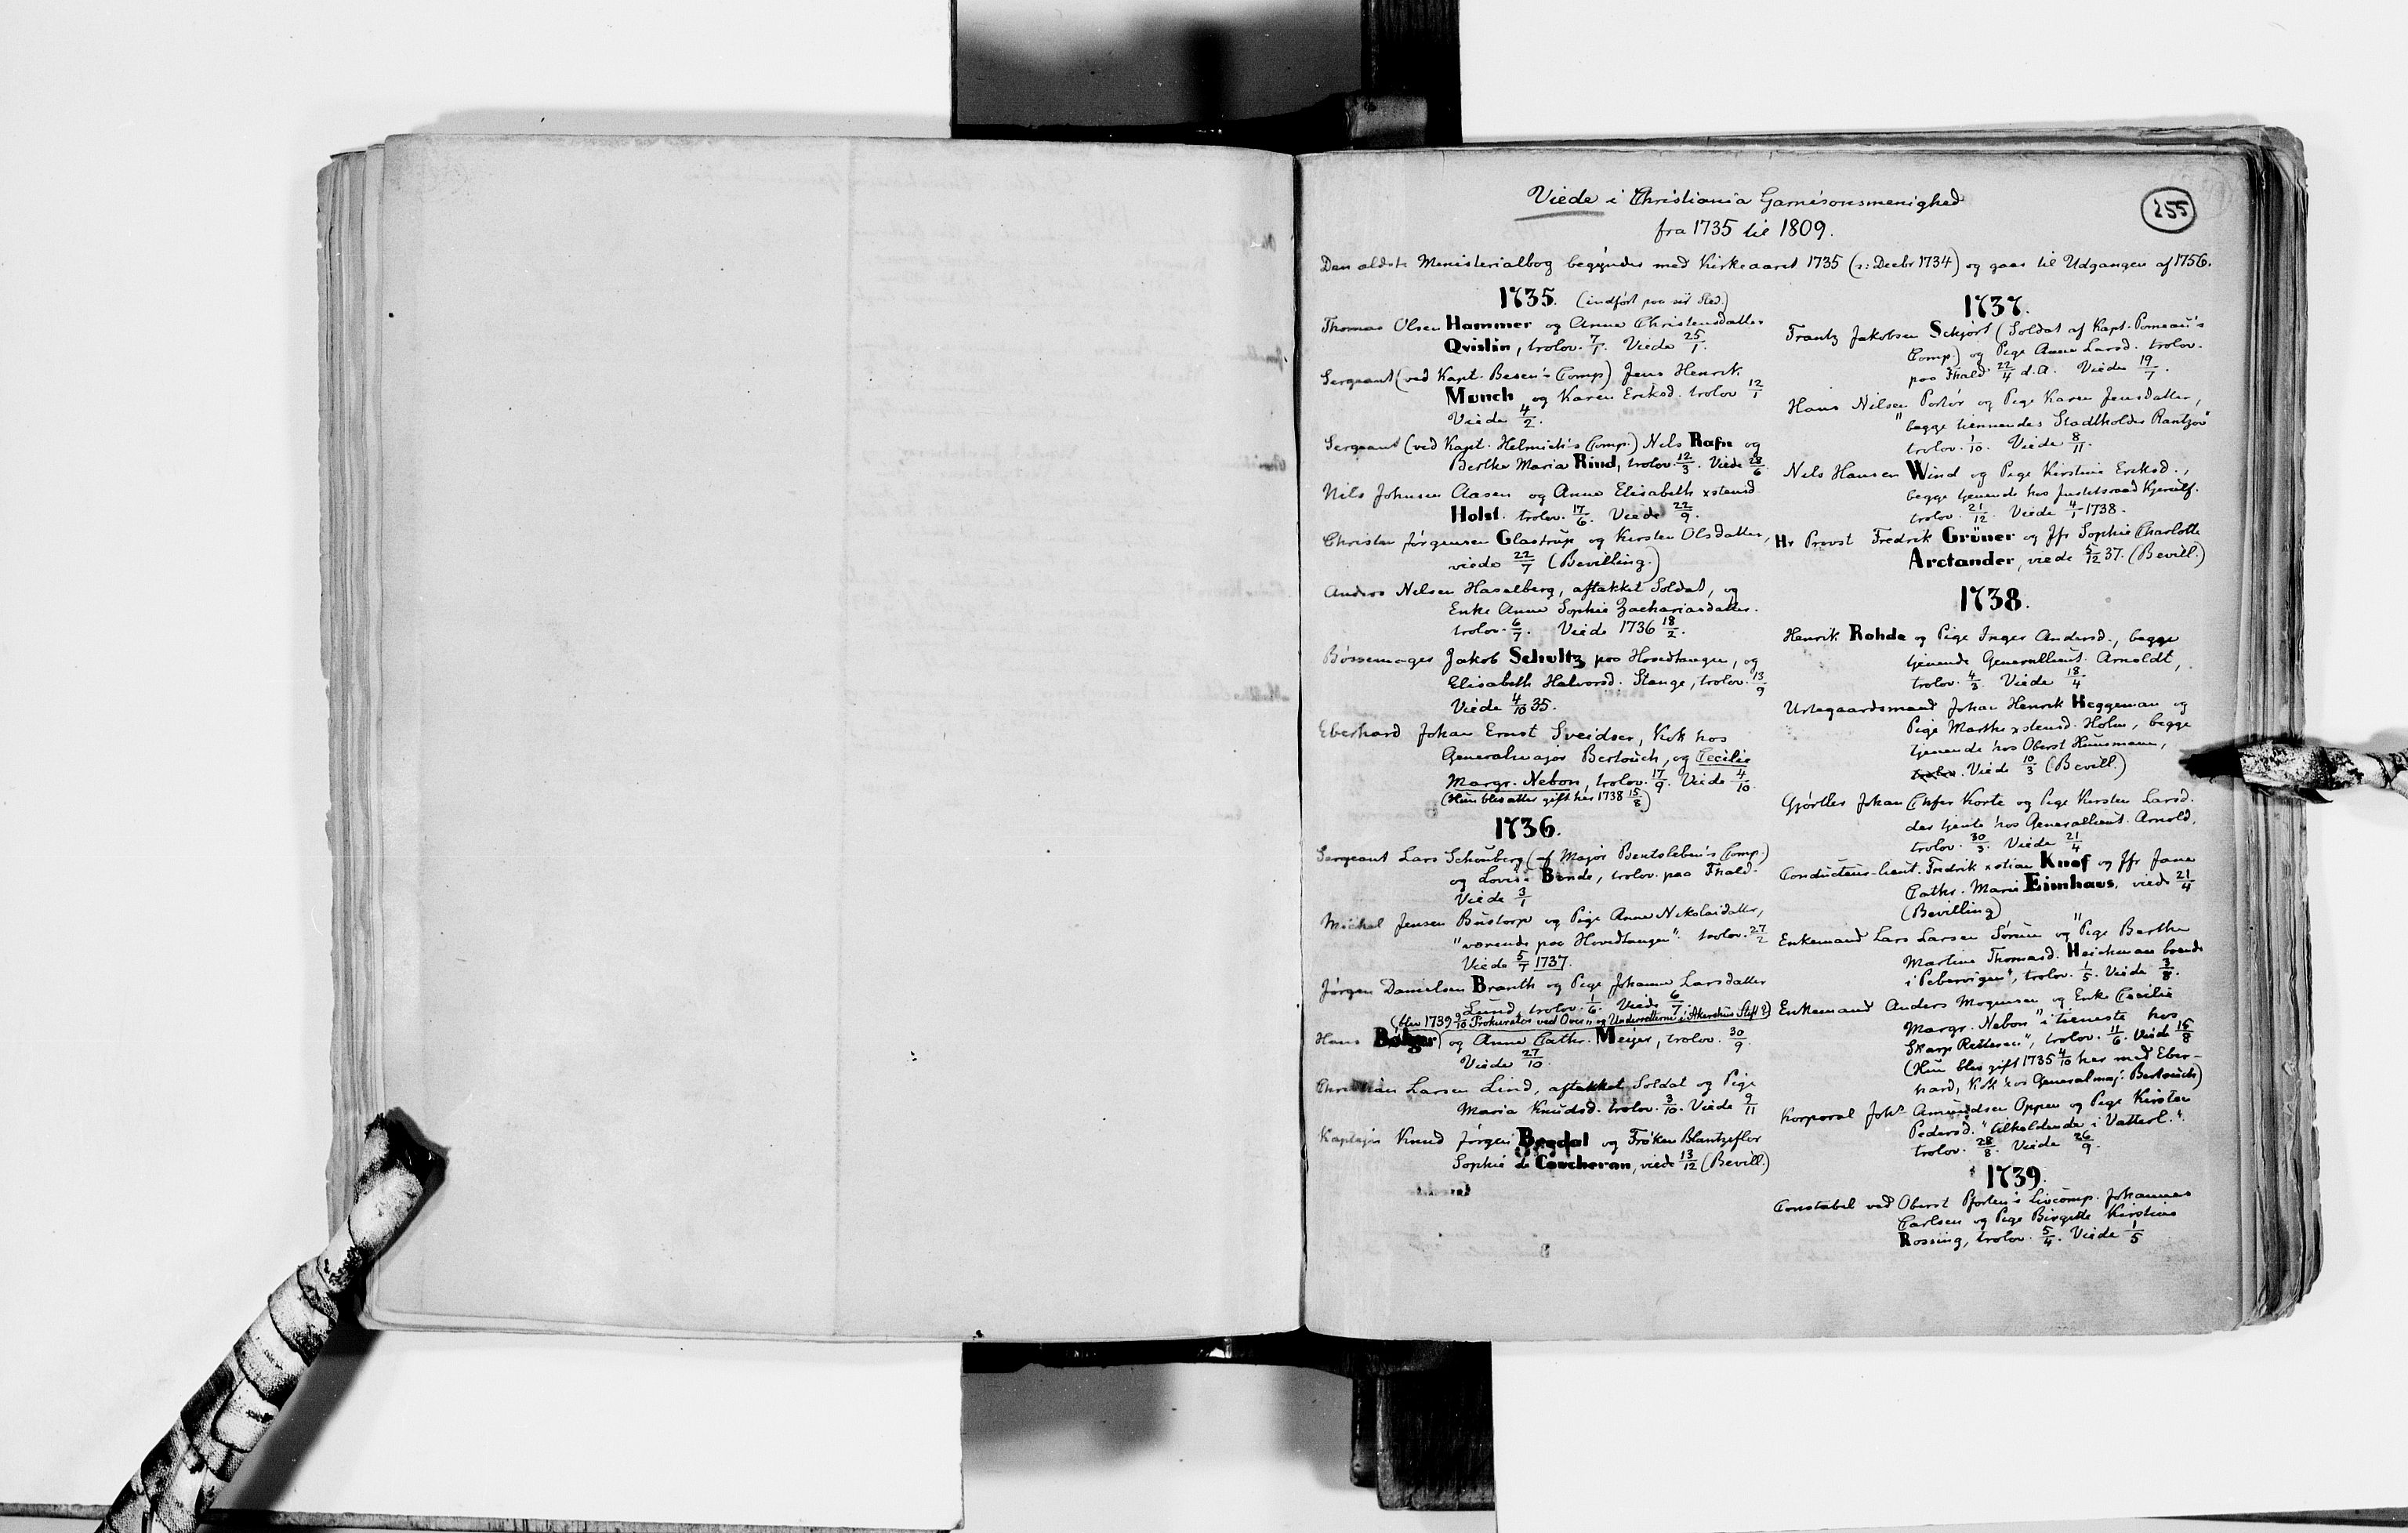 255
Viede i Christiania Garnisonsmenighed
fra 1735 til 1809.
Den ældste Ministerialbog begynder med Kirkeaaret 1735 (ɔ: Decbr 1734) og gaar til Udgangen af 1756.
1735. (indført paa sit Sted.)
Thomas Olsen Hammer og Anna Christensdatter
Qvislin, trolov. 7/1. Viede 25/1.
Sergeant (ved Kapt. Besen's Comp) Jens Henrik
Munch og Karen Eriksd. trolov 12/1
Viede 4/2.
Sergeant (ved Kapt. Helmich's Comp.) Nils Rafn og
Berthe Maria Rind, trolov. 12/3. Viede 28/6
Nils Johnsen Aasen og Anne Elisabeth xstensd.
Holst. trolov. 17/6. Viede 22/9.
Christen Jørgensen Glastrup og Kirsten Olsdatter,
viede 22/7 (Bevilling.)
Anders Nilsen Haselberg, aftakket Soldat, og
Enke Anne Sophie Zachariasdatter.
trolov. 6/7. Viede 1736 18/2.
Bøssemager Jakob Schultz paa Hovedtangen, og
Elisabeth Halvorsd. Stange, trolov. 13/9
Viede 4/10 35.
Eberhard Johan Ernst Sveidser, Kok hos
Generalmajor Bertouch, og Cecilie
Margr. Nebon, trolov. 17/9. Viede 4/10.
(Hun blev atter gift her 1738 15/8)
1736.
Sergeant Lars Schouberg (af Major Bentsleben's Comp.)
og Lovise Bonde, trolov. paa Fhald.
Viede 3/1
Michel Jensen Bustorp og Pige Anne Nikolaidatter,
"værende paa Hovedtangen". trolov. 27/2
Viede 5/7 1737.
Jørgen Danielsen Branth og Pige Johanne Larsdatter
Lund, trolov. 1/6. Viede 6/7
(blev 1739 9/10 Prokurator ved Over- og Underretterne i Akershus Stift?)
Hans Bølger og Anne Cathr. Meijer, trolov. 30/9.
Viede 27/10.
Christian Larsen Lind, aftakket Soldat og Pige
Maria Knudsd. trolov. 3/10. Viede 9/11
Kaptejn Knud Jørgen Begdal og Frøken Blantzeflor
Sophie de Coucheron, viede 13/12 (Bevill.)
1737.
Frantz Jakobsen Schjørt (Soldat af Kapt. Pomeau's
Comp.) og Pige Anne Larsd. trolov.
paa Fhald 22/4 d.A. Viede 19/7.
Hans Nilsen Portør og Pige Karen Jensdatter,
"begge tiennendes Stadtholder Rantzov"
trolov. 1/10. Viede 8/11.
Nels Hansen Wind og Pige Kirstine Eriksd.,
begge tjenende hos Justitsraad Kjerulf.
trolov. 21/12. Viede 4/1 1738.
Hr Provst Fredrik Grüner og Jfr Sophie Charlotte
Arctander, viede 5/12 37. (Bevill.)
1738.
Henrik Rohde og Pige Inger Andersd., begge
tjenende Generallieut. Arnoldt,
trolov. 4/3. Viede 18/4
Urtegaardsmand Johan Henrik Heggeman og
Pige Marthe xstensd. Holm, begge
tjenende hos Oberst Huusmann,
trolov. Viede 10/3 (Bevill.)
Gjørtler Johan Chfer Korte og Pige Kirsten Larsd.
der tjente hos Generallieut. Arnold,
trolov. 30/3. Viede 21/4
Conducteur-lieut. Fredrik xstian Knof og Jfr Jana
Cathr. Marie Eimhaus, viede 21/4
(Bevilling)
Enkemand Lars Larsen Sørum og "Pige Berthe
Martine Thomasd. Heichman boende
i Pebervigen", trolov. 1/5. Viede 3/8.
Enkemand Anders Mogensen og Enke Cecilie
Margr. Nebon "i tieneste hos
Skarp Retteren", trolov. 11/6. Viede 15/8
(Hun blev gift 1735 4/10 her med Eber-
hard, Kok hos Generalmaj. Bertouch)
Korporal Johs Amundsen Oppen og Pige Kirsten
Pedersd. "tilholdende i Vatterl.".
trolov. 28/8. Viede 26/9.
1739.
Constabel ved Oberst Pforten's Livcomp. Johannes
Carlsen og Pige Birgitte Kirstine
Rossing, trolov. 5/4. Viede 1/5